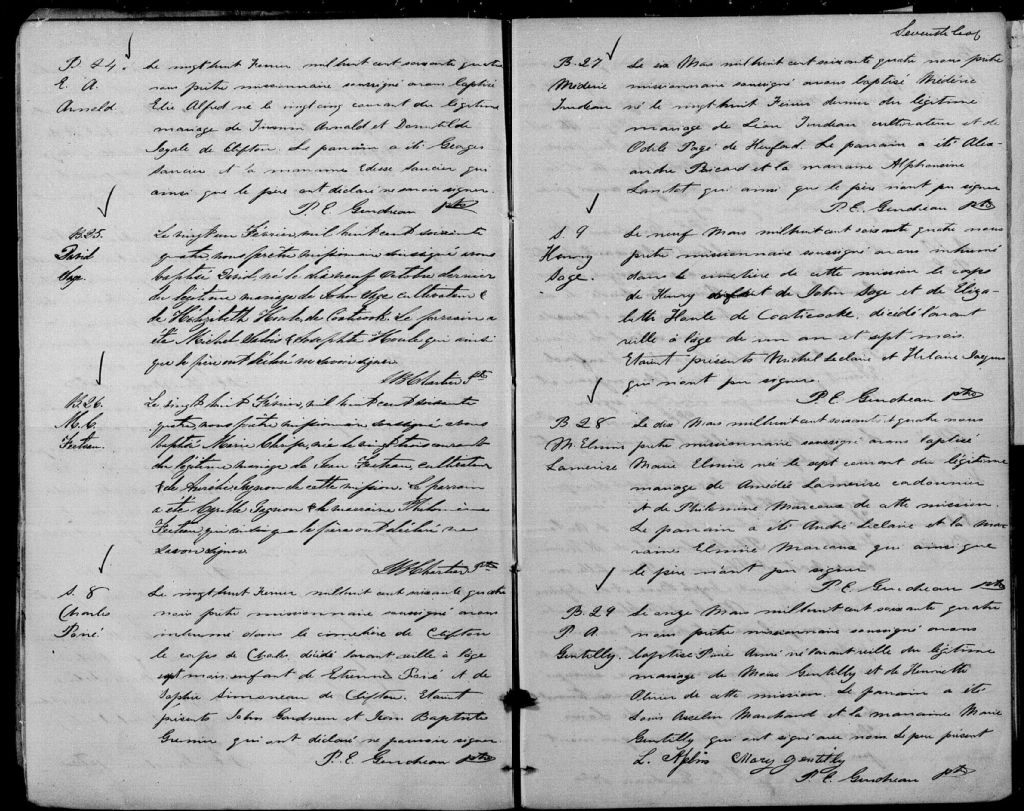 B. 24.
E. A.
Arnold
Le vingt huit Fevrier mil huit cent soixante quatre
nous prêtre missionnaire soussigné avons baptisé
Elie Alfred né le vingt cinq courant du légitime
mariage de Arnald et Domitilde
de Clifton. Le parrain a été Georges
Saucier et la marraine Edesse Saucier qui
ainsi que le père ont déclaré ne savoir signer.
P. E. Gendreau ptre
B. 25.
David
Sage
Le vingt un Février, mil huit cent soixante
quatre, nous prêtre missionnaire soussigné avons
baptisé David, né le dix neuf Octobre dernier
du légitime mariage de John Sage cultivateur &
de Elizabeth Houle, de Coaticook. Le parrain a
été Michel & Josephte Houle qui ainsi
que le père ont déclaré ne savoir signer.
Chartier Ptre
B. 26.
M. C.
Fecteau.
Le vingt huit Février, mil huit cent soixante
quatre, nous prêtre missionnaire soussigné avons
baptisé Marie née le courant
du légitime mariage de Jean Fecteau, cultivateur
& de Aurélie Gagnon de cette mission. Le parrain
a été Cyrille Gagnon & la marraine
Fecteau, qui ainsi que le père ont déclaré ne
savoir signer
Chartier Ptre
S. 8
Charles
Paré
Le vingt huit Fevrier mil huit cent soixante quatre
nous prêtre missionnaire soussigné avons
inhumé dans le cimetière de Clifton
le corps de Charles décédé l'avant veille à l'âge
sept mois enfant de Etienne Paré et de
Sophie Simoneau de Clifton. Etaient
présents Gendreau et Jean Baptiste
Grenier qui ont déclaré ne pouvoir signer
P. E. Gendreau ptre
Seventh leaf
B. 27
Médérie
Trudeau
Le six Mars mil huit cent soixante quatre nous prêtre
missionnaire soussigné avons baptisé Médérie
né le vingt huit Février dernier du légitime
mariage de Léon Trudeau cultivateur et de
Odile Pagé de Hereford. Le parrain a été Alex-
andre Bicard et la marraine Alphonsine
Lanctot qui ainsi que le père n'ont pu signer
P. E. Gendreau ptre
S. 9
Henry
Sage.
Le neuf Mars mil huit cent soixante quatre nous
prêtre missionnaire soussigné avons inhumé
dans le cimetière de cette mission le corps
de Henry enfant de John Sage et de Eliza-
beth Houle de Coaticooke, décédé l'avant
veille à l'âge de un an et sept mois.
Etaient présents Michel Leclaire et Hélaine Jacques
qui n'ont pu signer.
P. E. Gendreau ptre
B. 28
M. Elmire
Lamerise
Le dix Mars mil huit cent soixante & quatre nous
prêtre missionnaire soussigné avons baptisé
Marie Elmire né le sept courant du légitime
mariage de Amédée Lamerise cordonnier
et de Philomine Marcoux de cette mission.
Le parrain a été André Leclaire et la mar-
raine Elmire Marcoux qui ainsi que
le père n'ont pu signer
P. E. Gendreau ptre
B. 29
P. A.
Gentilly.
Le onze Mars mil huit cent soixante quatre
nous prêtre missionnaire soussigné avons
baptisé Pierre Aimé né l'avant veille du légitime
mariage de Moïse Gentilly et de Henriette
Olivier de cette mission. Le parrain a été
Louis Ascelin Marchand et la marraine Marie
Gentilly qui ont signé avec nous le père présent
L. Mary Gentilly
P. E. Gendreau ptre